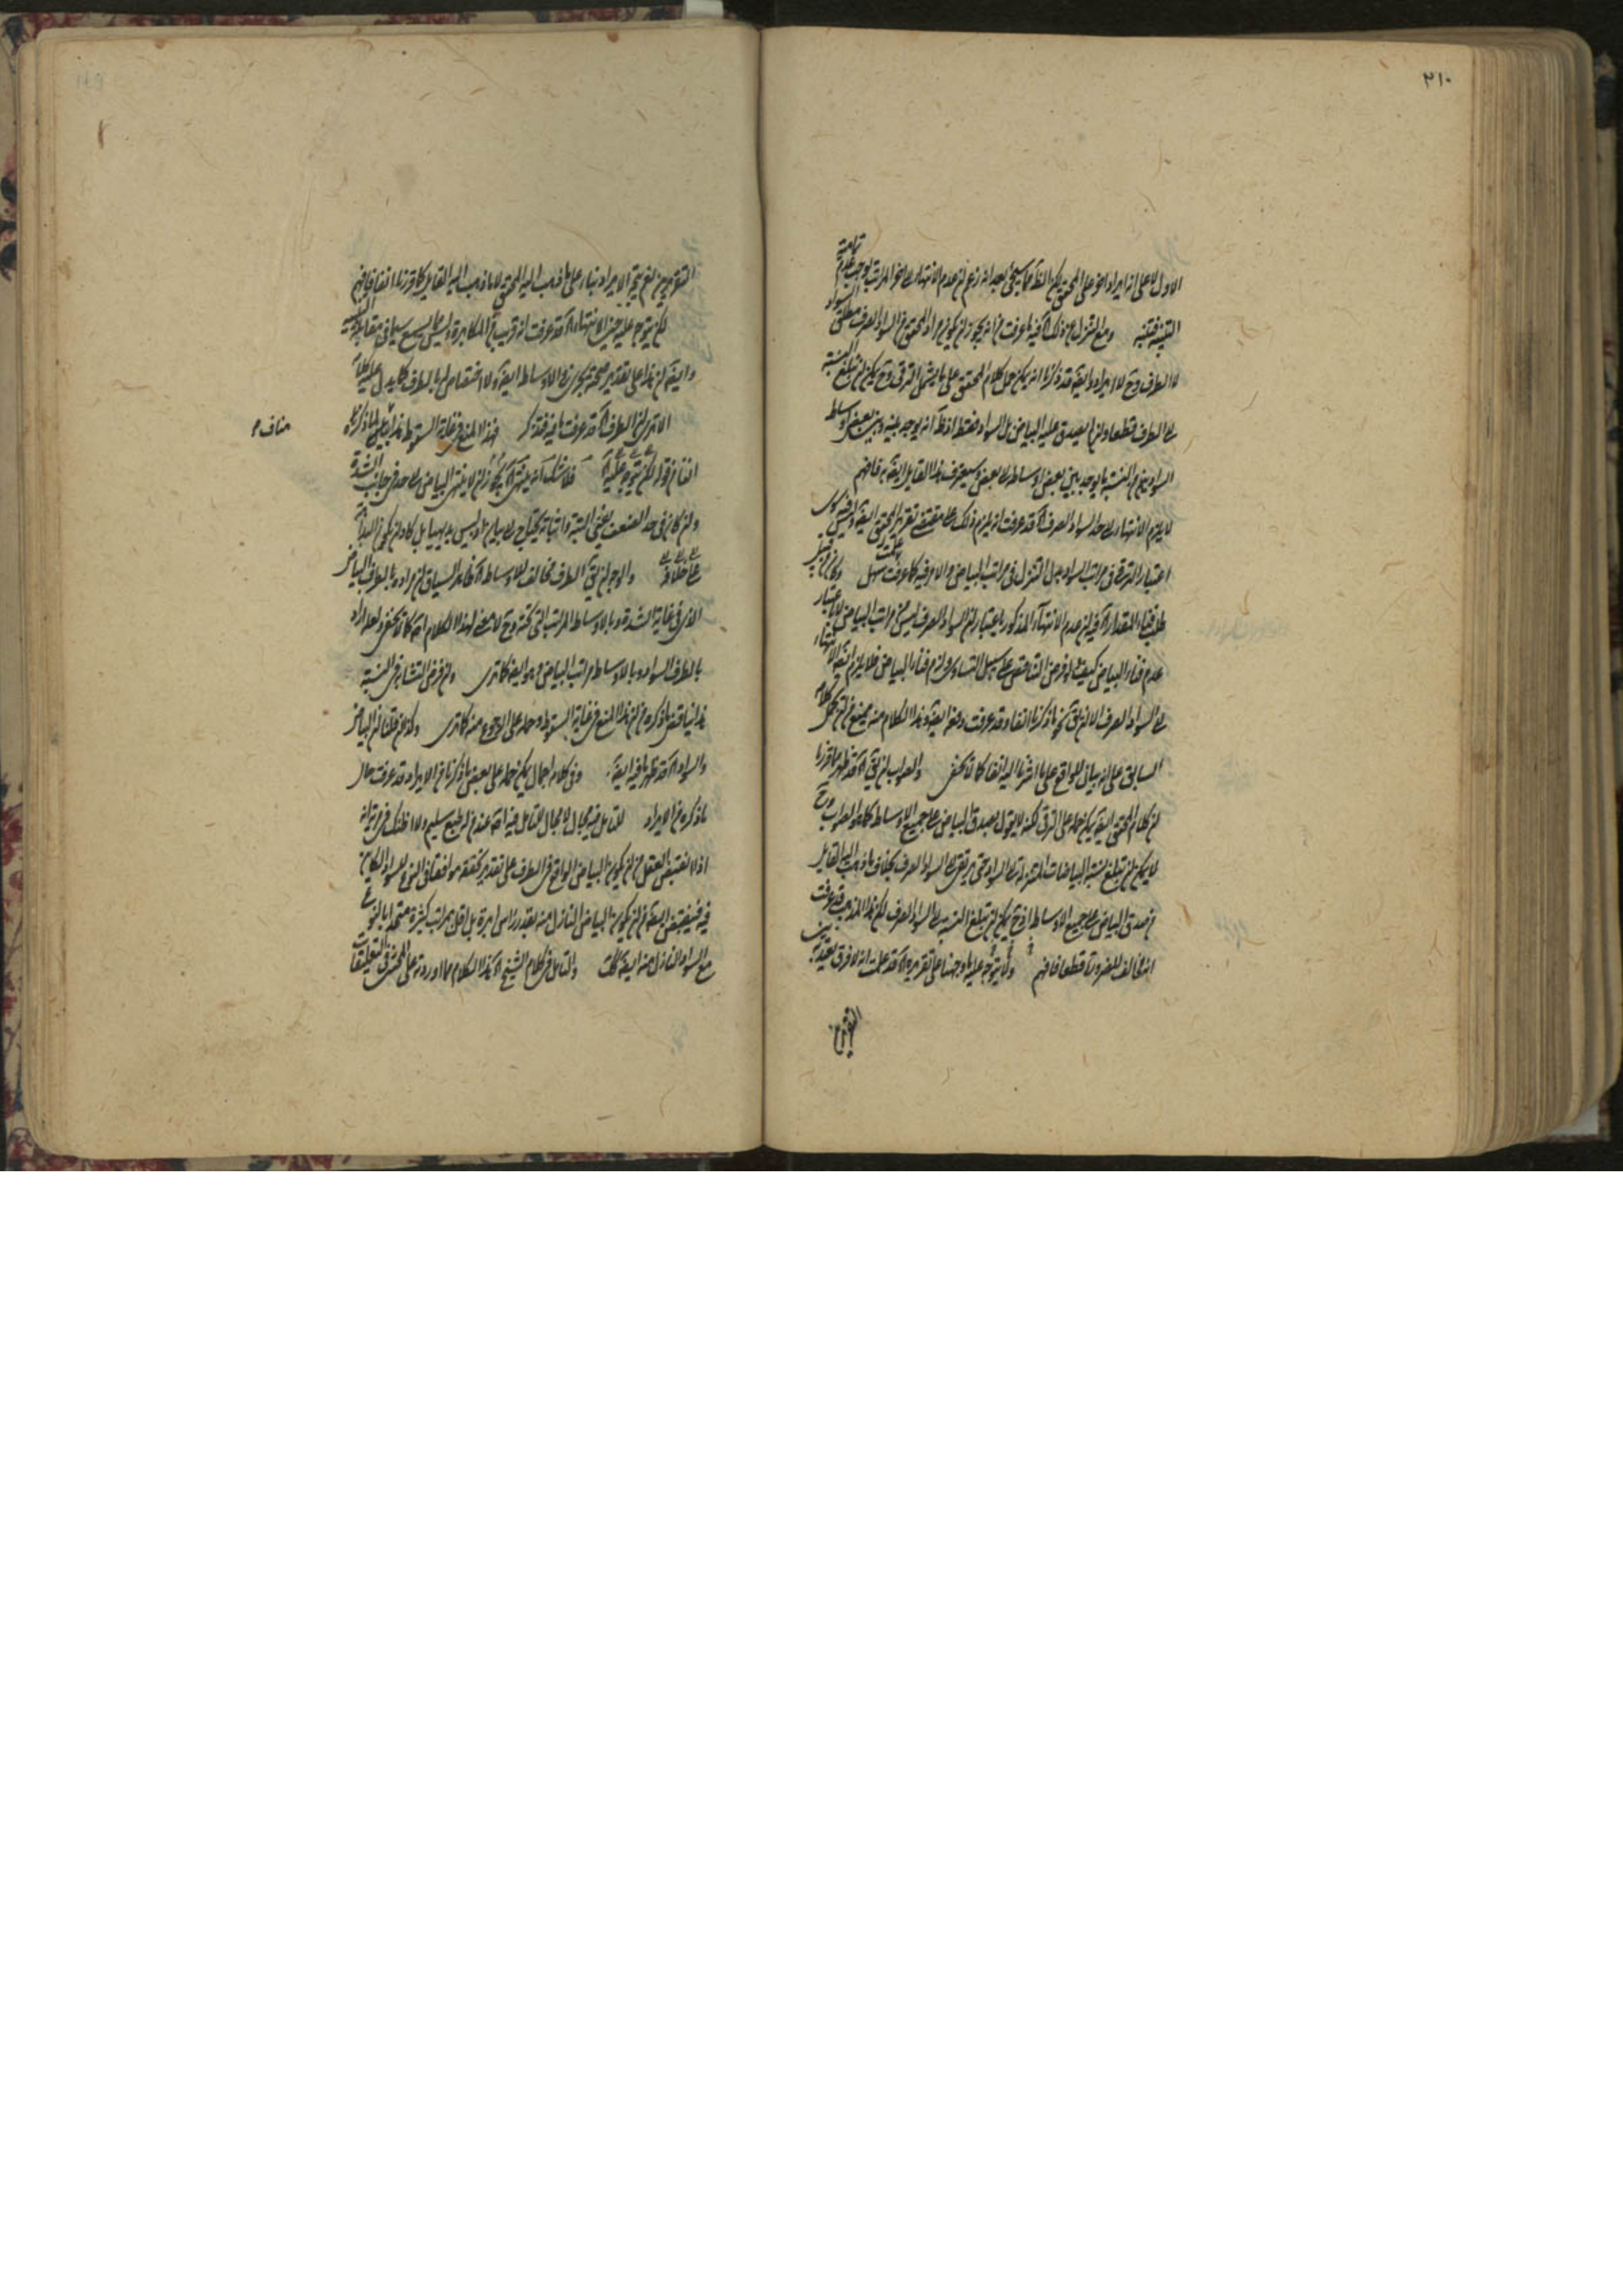 ٢١٠
الاول لا على انه ايراد اخر على المحقق لكن الظ مما سيجئ بعد انه زعم ان عدم الانتهاء الى اخر المراتب يوجب عدم تمامية
التنبيه فتنبه ومع التنزل عن ذلك فيه ما عرفت من انه يجوز ان يكون مراد المحقق من السواد الصرف مطلق السواد
لا الطرف وح لا ايراد وايضا قد ذكرنا انه يمكن حمل كلام المحقق على ما يشمل الترقى وح يمكن ان تبلغ النسبة
الى الطرف قطعا ولم يصدق عليه البياض بل السواد فقط اذ ظ انه يوجد بينه وبين بعض اوساط
السواد من النسبة ما يوجد بين بعض اوساطه الى بعض وسيعترف هذا القايل ايضا به فافهم
لا يلزم الانتهاء الى حد السواد الصرف اه قد عرفت انه يلزم ذلك على مقتضى تقرير المحقق ايضا وليس فيه سوى
اعتبار الترقى فى مراتب السواد بدل التنزل فى مراتب البياض والامر فيه كما عرفت سهل
فناء المقدار اه فيه ان عدم الانتهاء المذكور باعتبار ان السواد الصرف ليس من مراتب البياض لا باعتبار
عدم فناء البياض كيف ولو فرض التناقص على سبيل التساوى ولزم فناء البياض فلا يلزم ايضا الانتهاء
الى السواد الصرف الا ان يق بنحو ما ذكرنا انفا وقد عرفت دفعه ايضا وهذا الكلام منه
السابق على انه بيان للواقع على ما اشرنا اليه انفا كما لا يخفى والصواب ان يق اه قد ظهر مما قررنا
ان كلام المحقق ايضا يمكن حمله على الترقى لكنه لا يقول بصدق البياض على جميع الاوساط كما هو الصواب وح
لا يمكن ان تبلغ نسبة البياضات المتنزلة الى السواد حتى يرتقى الى السواد الصرف بخلاف ما ذهب اليه القايل
من صدق البياض على جميع الاوساط اذ ح يمكن ان تبلغ النسبة الى السواد الصرف لكن هذا المذهب قد عرفت
انه مخالف للضرورة قطعا فافهم ولا يتوجه عليه ما وجهنا على تقريره اه قد علمت انه لا فرق بعيد به بين
التقريرين
التقريرين نعم يتجه الايراد بناء على ما ذهب اليه المحقق لا ما ذهب اليه القايل كما قررنا انفا فافهم
لكن يتوجه عليه حينئذ الانتهاء اه قد عرفت انه قريب من المكابرة وليس مما يسمع سيما فى مقابلة التنبيه
وايضا ان هذا على تقدير صحته يجرى فى الاوساط ايضا ولا اختصاص له بالطرف كما يدل عليه كلامه
الا ترى ان الطرف اه قد عرفت ما فيه فتذكر فهذا المنع فى غاية السقوط هذا مناف لما ذكره
مناف م
انفا من قوله لكن يتوجه عليه اه فلا شك انه ينتهى اه يجوز ان لا ينتهى البياض الى حد فى جانب الشدة
وان كان فى حد الضعف ينتهى البتة واثباته يحتاج الى بيان وليس بديهيا بل كاد ان يكون البداهة
على خلافه والاوجه ان يق الطرف مخالف للاوساط اه ظاهر السياق ان مراده بالطرف البياض
الذى فى غاية الشدة وبالاوساط المراتب التى تحته وح لا معنى لهذا الكلام اصلا كما لا يخفى ولعله اراد
بالطرف السواد وبالاوساط مراتب البياض وهو ايضا كما ترى وان فرض التشابه فى النسبة
هذا يناقض ما ذكره من ان هذا المنع فى غاية السقوط وحمله على الرجوع منه كما ترى وكذا ان قلنا ان البياض
والسواد اه قد ظهر ما فيه ايضا وفى كلامه اجمال يمكن حمله على بعض ما ذكرنا من الايراد قد عرفت حال
ما ذكره من الايراد للتامل فيه مجال لا مجال للتامل فيه اصلا عند من له طبع سليم ولا اظنك فى مرية انه
اذا لا تقبض العقل من ان يكون البياض الواقع فى الطرف على تقدير تحققه موافقا فى النوع للسواد الكاين
فيه فينقبض ايضا من ان يكون البياض النازل منه بقدر راس ابرة بل اقل بمراتب كثيرة متحدا بالنوع
مع السواد النازل منه ايضا كك والتامل فى كلام الشيخ اه هذا الكلام مما اورده على المحشى فى التعليقات